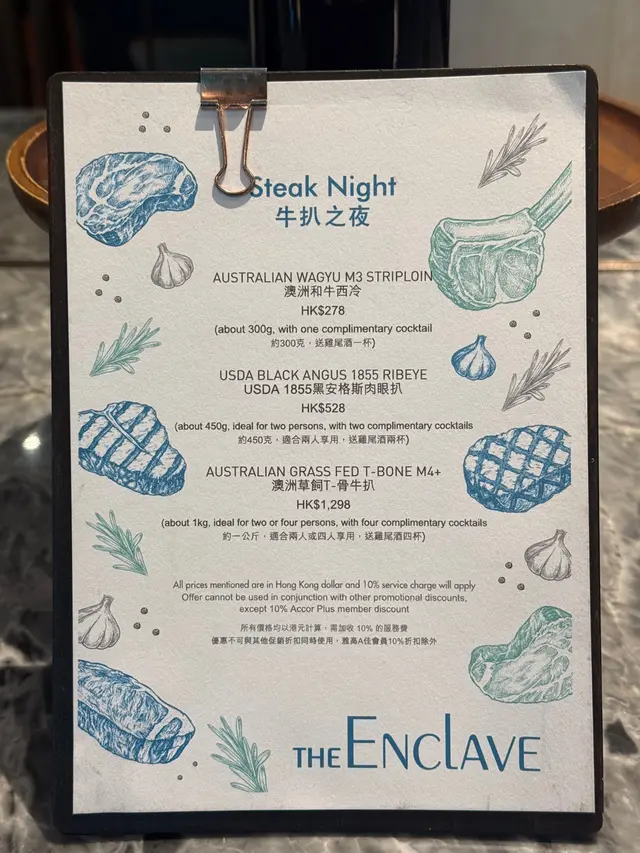 Steak Night
牛扒之夜
AUSTRALIAN WAGYU M3 STRIPLOIN
澳洲和牛西冷
HK$278
(about 300g, with one complimentary cocktail
約300克，送雞尾酒一杯)
USDA BLACK ANGUS 1855 RIBEYE
USDA 1855黑安格斯肉眼扒
HK$528
(about 450g, ideal for two persons, with two complimentary cocktails
約450克，適合兩人享用，送雞尾酒兩杯)
AUSTRALIAN GRASS FED T-BONE M4+
澳洲草飼T-骨牛扒
HK$1,298
(about 1kg, ideal for two or four persons, with four complimentary cocktails
約一公斤，適合兩人或四人享用，送雞尾酒四杯)
All prices mentioned are in Hong Kong dollar and 10% service charge will apply
Offer cannot be used in conjunction with other promotional discounts,
except 10% Accor Plus member discount
所有價格均以港元計算，需加收 10% 的服務費
優惠不可與其他促銷折扣同時使用，雅高A佳會員10%折扣除外
THE ENCLAVE